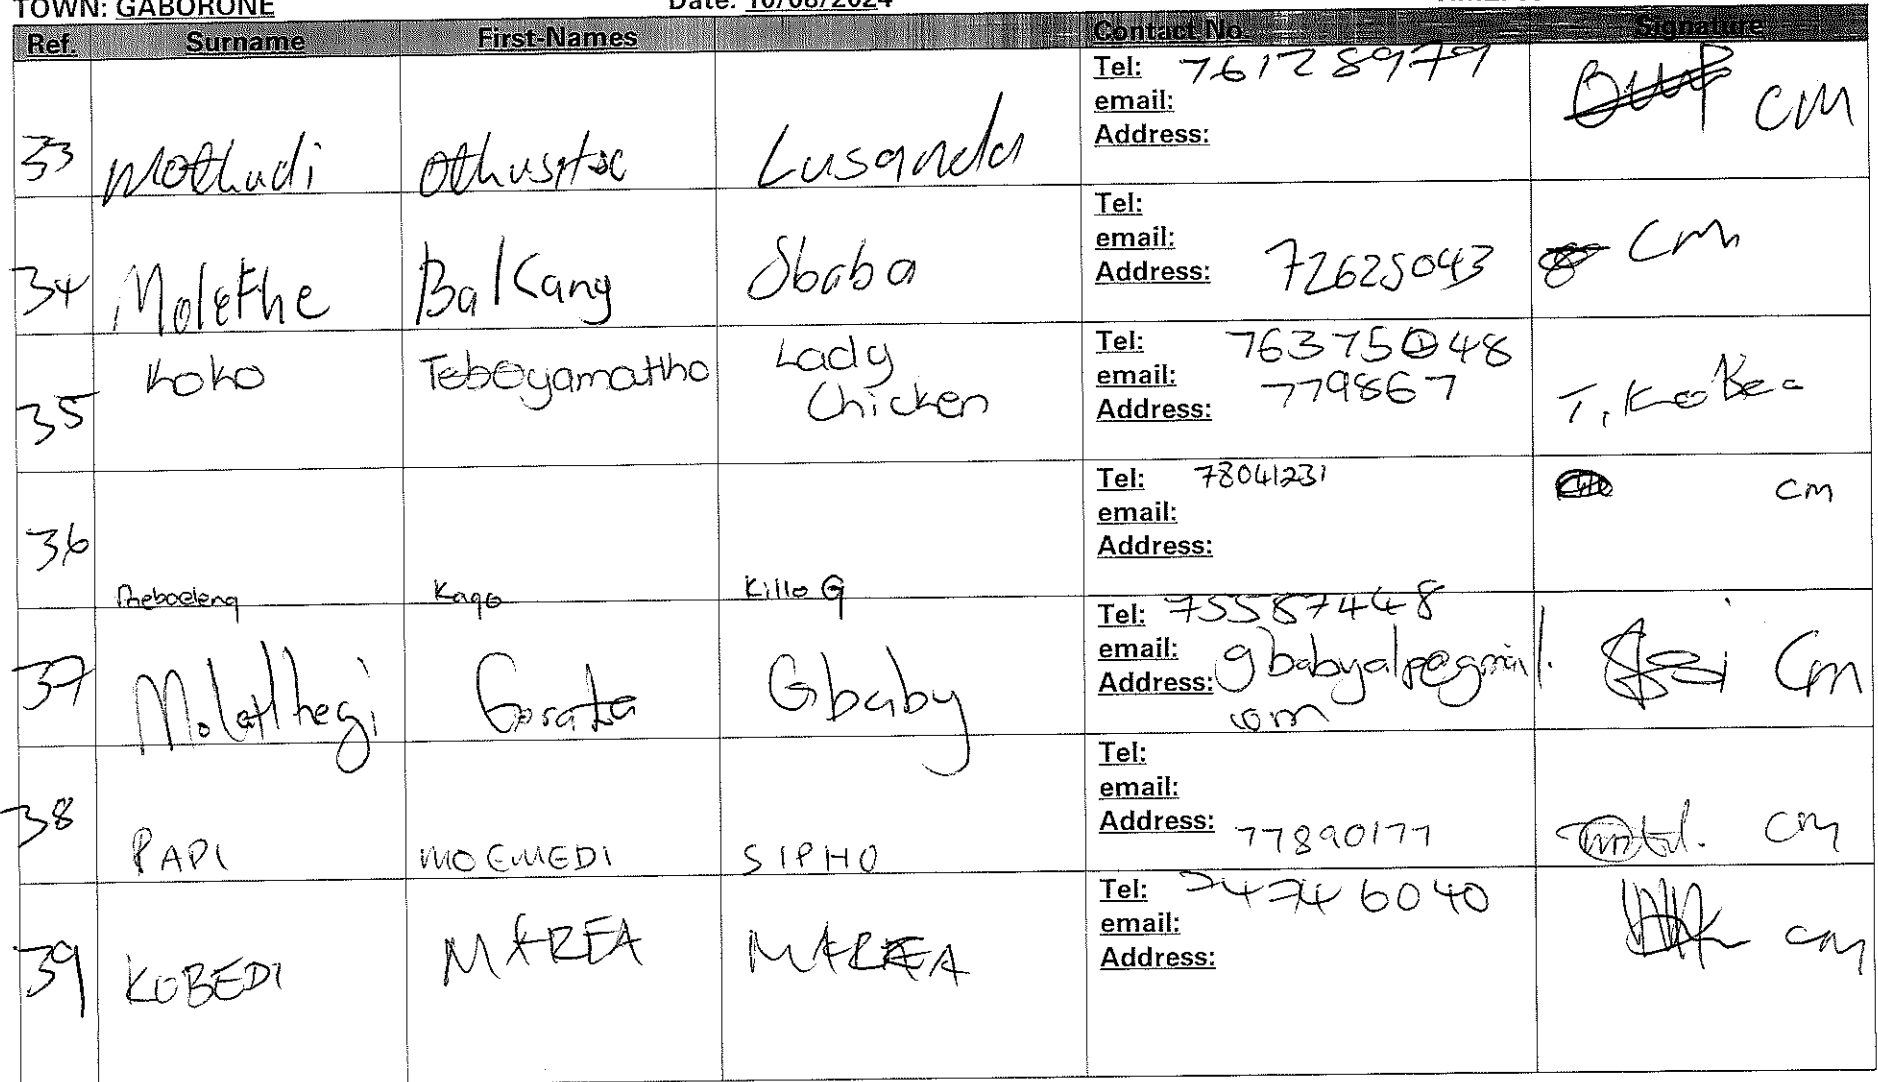 TOWN: GABORONE Date: 10/08/2024
Ref. Surname First-Names Contact No. Signature
33 Mothudi Lusanda Tel: 76128979 CM
email:
Address:
34 Molefhe Bakang Sbaba Tel: cm
email:
Address: 72625043
35 Koko Lady Chicken Tel: 76375048
email: 779867
Address:
36 Kago Killo G Tel: 78041231 cm
email:
Address:
37 Molatlhegi Gorata Gbaby Tel: 75587448 Cm
email: gbabyalp@gmail.
Address: com
38 PAPI MOEMEDI SIPHO Tel: cm
email:
Address: 77890177
39 KOBEDI MAREA MAREA Tel: 74746040 cm
email:
Address: